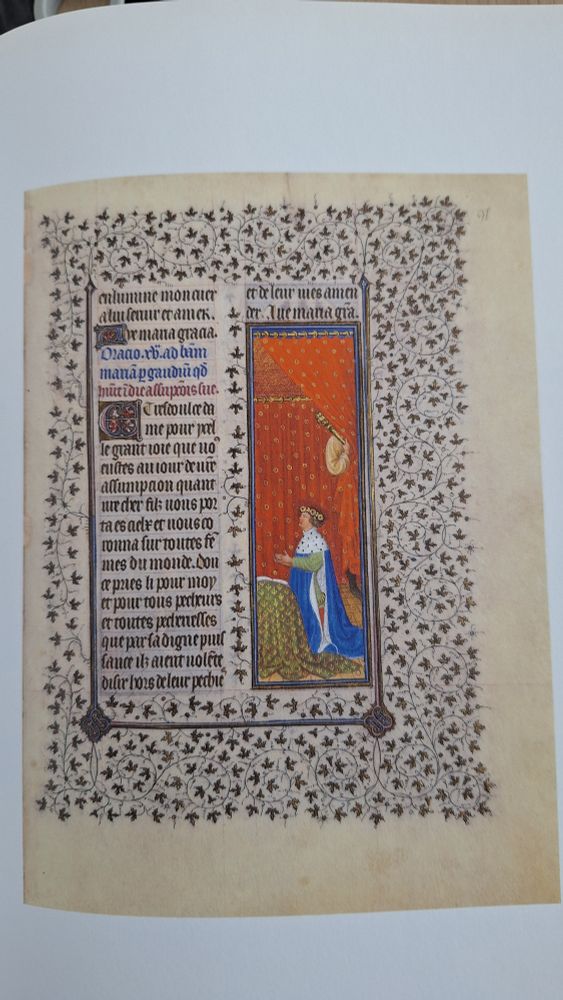 enlumine mon cuer
a lui servir et amer.
Ave maria gracia.
Oracio. xv. ad bām
mariā p gaudiū qđ
die assūpcōis sue.
Tresdoulce da
me pour ycel
le grant ioie que vo9
eustes au iour de vr̄e
assumpcion quant
vr̄e cher filz vous por
ta es cielx et vous co
ronna sur toutes fē
mes du monde. Dou
ce pries li pour moy
et pour tous pecheurs
et toutes pecheresses
que par sa digne puis
sance ilz aient volēte
dissir hors de leur pechie
et de leur vies amen
der. Ave maria gr̄a.
91